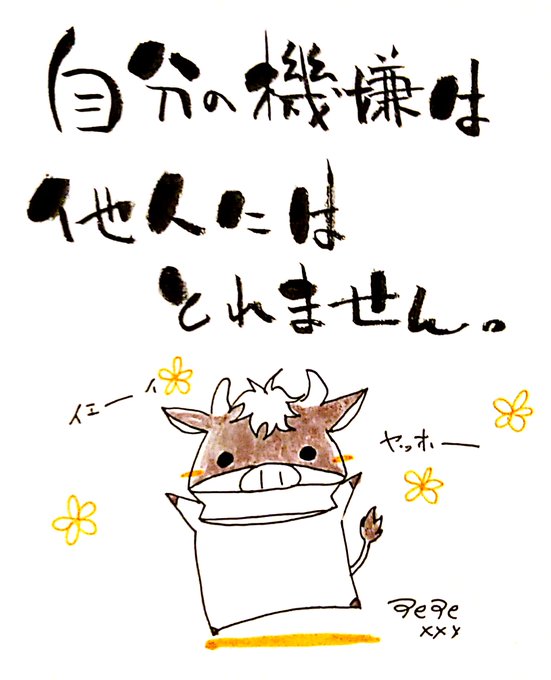 自分の機嫌は
他人には
とれません。
イエーイ
ヤッホー
ReRe
xxx